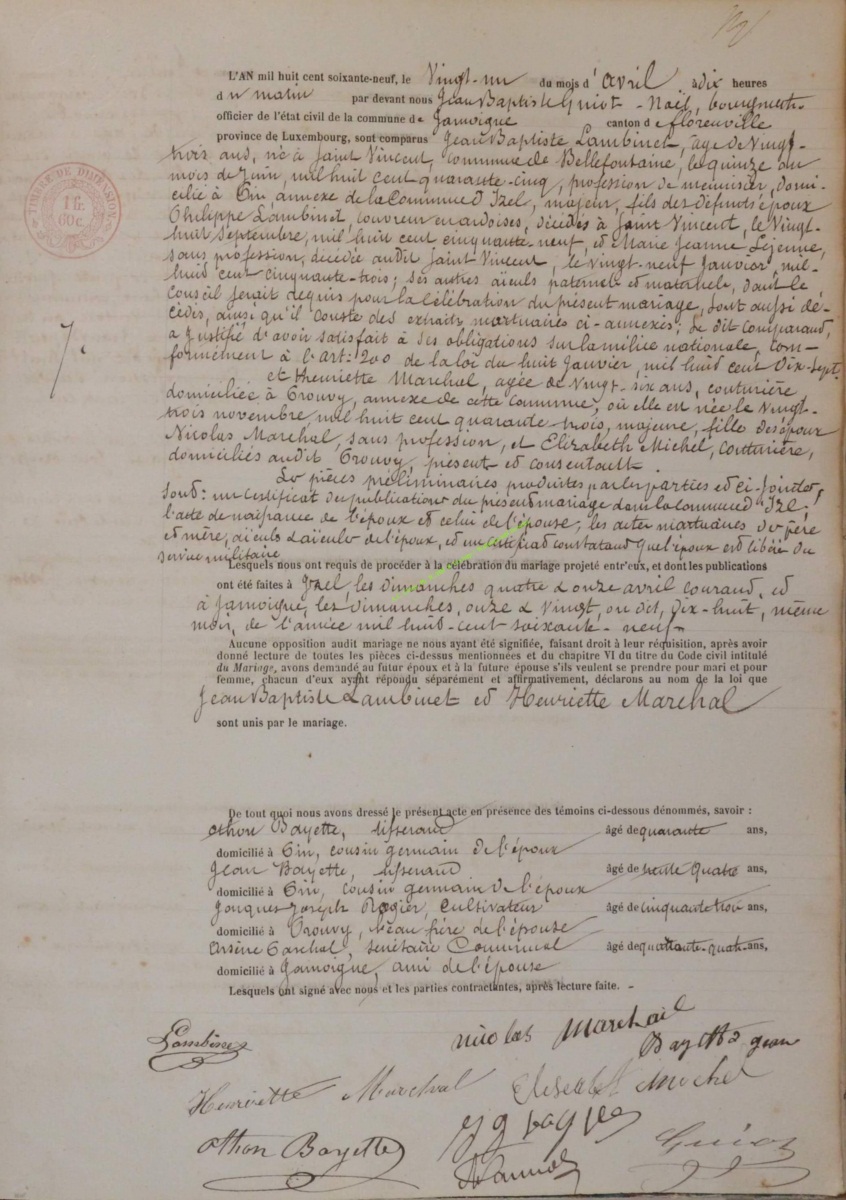 L'AN mil huit cent soixante-neuf, le Vingt-un du mois d'avril à dix heures
du matin par devant nous Jean Baptiste Guiot-Noël, bourgmestre
officier de l'état civil de la commune de Jamoigne canton de florenville
province de Luxembourg, sont comparus Jean Baptiste Lambinet, âgé de Vingt-
trois ans, né à Saint Vincent, commune de Bellefontaine, le quinze du
mois de Juin, mil huit cent quarante-cinq, profession de menuisier, domi-
cilié à Tin, annexe de la Commune d'Izel, majeur, fils des défunts époux
Philippe Lambinet, couvreur en ardoises, décédés à Saint Vincent, le Vingt-
huit Septembre, mil huit cent cinquante neuf, et Marie Jeanne Lejeune,
sans profession, décédée audit Saint Vincent, le vingt-neuf Janvier, mil-
huit cent cinquante-trois; ses autres aïeuls paternels et maternels, dont le
Conseil serait requis pour la célébration du présent mariage, sont aussi dé-
cédés, ainsi qu'il conste des extraits mortuaires ci-annexés; le dit comparant,
a justifié d'avoir satisfait à ses obligations sur la milice nationale, con-
formément à l'art: 200 de la loi du huit Janvier, mil huit cent Dix-Sept.
et Henriette Marchal, agée de Vingt-six ans, couturière
domiciliée à Prouvy, annexe de cette Commune, où elle est née le Vingt-
trois novembre, mil huit cent quarante trois, majeure, fille des époux
Nicolas Marchal, sans profession, et Elizabeth Michel, couturière,
domiciliés audit Prouvy, présents et consentants.
Les pièces préliminaires produites par les parties et ci-jointes,
sont: un certificat des publications du présent mariage dans la commune d'Izel;
l'acte de naissance de l'époux et celui de l'épouse; les actes mortuaires des père
et mère, aïeuls & aïeules de l'époux, et un certificat constatant que l'époux est libéré du
service militaire
Lesquels nous ont requis de procéder à la célébration du mariage projeté entr'eux, et dont les publications
ont été faites à Izel, les dimanches quatre & onze avril courant, et
à Jamoigne, les Dimanches, onze & Vingt, on dit, dix-huit, même
mois, de l'année mil huit-cent-soixante-neuf
Aucune opposition audit mariage ne nous ayant été signifiée, faisant droit à leur réquisition, après avoir
donné lecture de toutes les pièces ci-dessus mentionnées et du chapitre VI du titre du Code civil intitulé
du Mariage, avons demandé au futur époux et à la future épouse s'ils veulent se prendre pour mari et pour
femme, chacun d'eux ayant répondu séparément et affirmativement, déclarons au nom de la loi que
Jean Baptiste Lambinet et Henriette Marchal
sont unis par le mariage.
De tout quoi nous avons dressé le présent acte en présence des témoins ci-dessous dénommés, savoir :
othon Bayette, tisserand âgé de quarante ans,
domicilié à Tin, cousin germain de l'époux
Jean Bayette, tisserand âgé de trente quatre ans,
domicilié à Tin, cousin germain de l'époux
Jacques Joseph Rogier, cultivateur âgé de cinquante trois ans,
domicilié à Prouvy, beau frère de l'épouse
Arsène secrétaire Communal âgé de quarante-quatre ans,
domicilié à Jamoigne, ami de l'épouse
Lesquels ont signé avec nous et les parties contractantes, après lecture faite. -
TIMBRE DE DIMENSION
1 fr.
60 c.
7.
Lambinet
nicolas Marchal
Bayette jean
Henriette Marchal
Michel
othon Bayette
Guiot